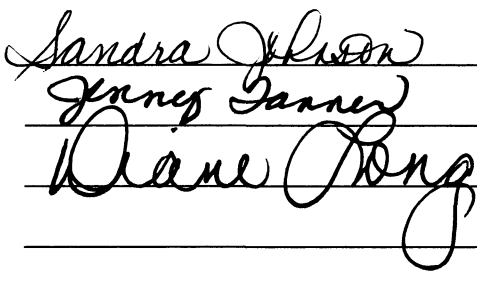 Sandra Johnson
Jenney Tanner
Diane Long